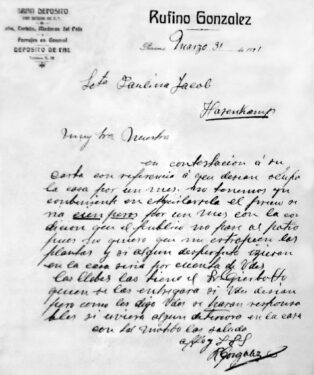 GRAN DEPOSITO
Forrajes en General
DEPOSITO DE CAL
Rufino Gonzalez
Marzo 31
Srta Paulina Jacob
Hasenkamp
Muy Sra Nuestra
en contestacion á su
carta con referencia á que desian ocupa
la casa por un mes. no tenemos yn
combeniente en alquilarsela el precio se
ra cien pesos por un mes con la con
dicion que el publico no pase al patio
pues no quiero que me estropien las
plantas y si algun desperfuto isieran
en la casa seria por cuenta de Vdes
las llebes las tiene el Sr
quien se las entregara si Vdes desian
pero como les digo Vdes se haran responsa
bles si uviera algun deterioro en la casa
con tal motibo las saluda
R Gonzalez